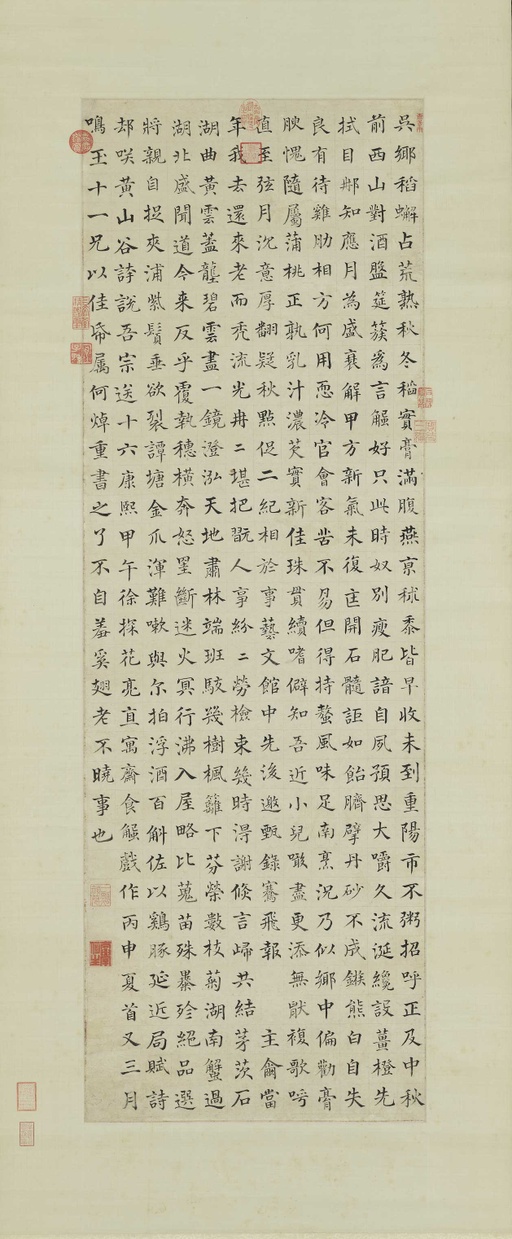 吳鄉稻蠏占荒熟秋冬稻實膏滿腹燕京秫黍皆早收未到重陽市不粥招呼正及中秋
前西山對酒盤筵簇為言蠏好只此時奴別瘦肥諳自夙預思大嚼久流涎纔設薑橙先
拭目那知應月為盛衰解甲方新氣未復匡開石髓詎如飴臍擘丹砂不成鏃熊白自失
良有待雞肋相方何用恧冷官會客苦不易但得持螯風味足南烹況乃似鄉中偏勸膏
腴愧隨屬蒲桃正孰乳汁濃芡實新佳珠貫續嗜僻知吾近小兒噉盡更添無猒複歌呺
直至弦月沉意厚翻疑秋點促二紀相於事藝文館中先後邀甄錄騫飛報主龠當
年我去還來老而禿流光冉二堪把翫人事紛二勞檢束幾時得謝倏言歸共結茅茨石
湖曲黃雲蓋壟碧雲盡一鏡澄泓天地肅林端班駁幾樹楓籬下芬榮數枝菊湖南蟹過
湖北盛聞道今來反乎覆執穗橫奔怒星斷迷火冥行沸入屋略比蒐苗殊暴殄絕品選
將親自捉夾浦紫鬚垂欲裂譚塘金爪渾難嗽與尔拍浮酒百斛佐以鷄豚延近局賦詩
却咲黃山谷詩說吾宗送十六康熙甲午徐探花亮直寓齋食蠏戲作丙申夏首又三月
鳴玉十一兄以佳帋属何焯重書之了不自羞奚翅老不曉事也